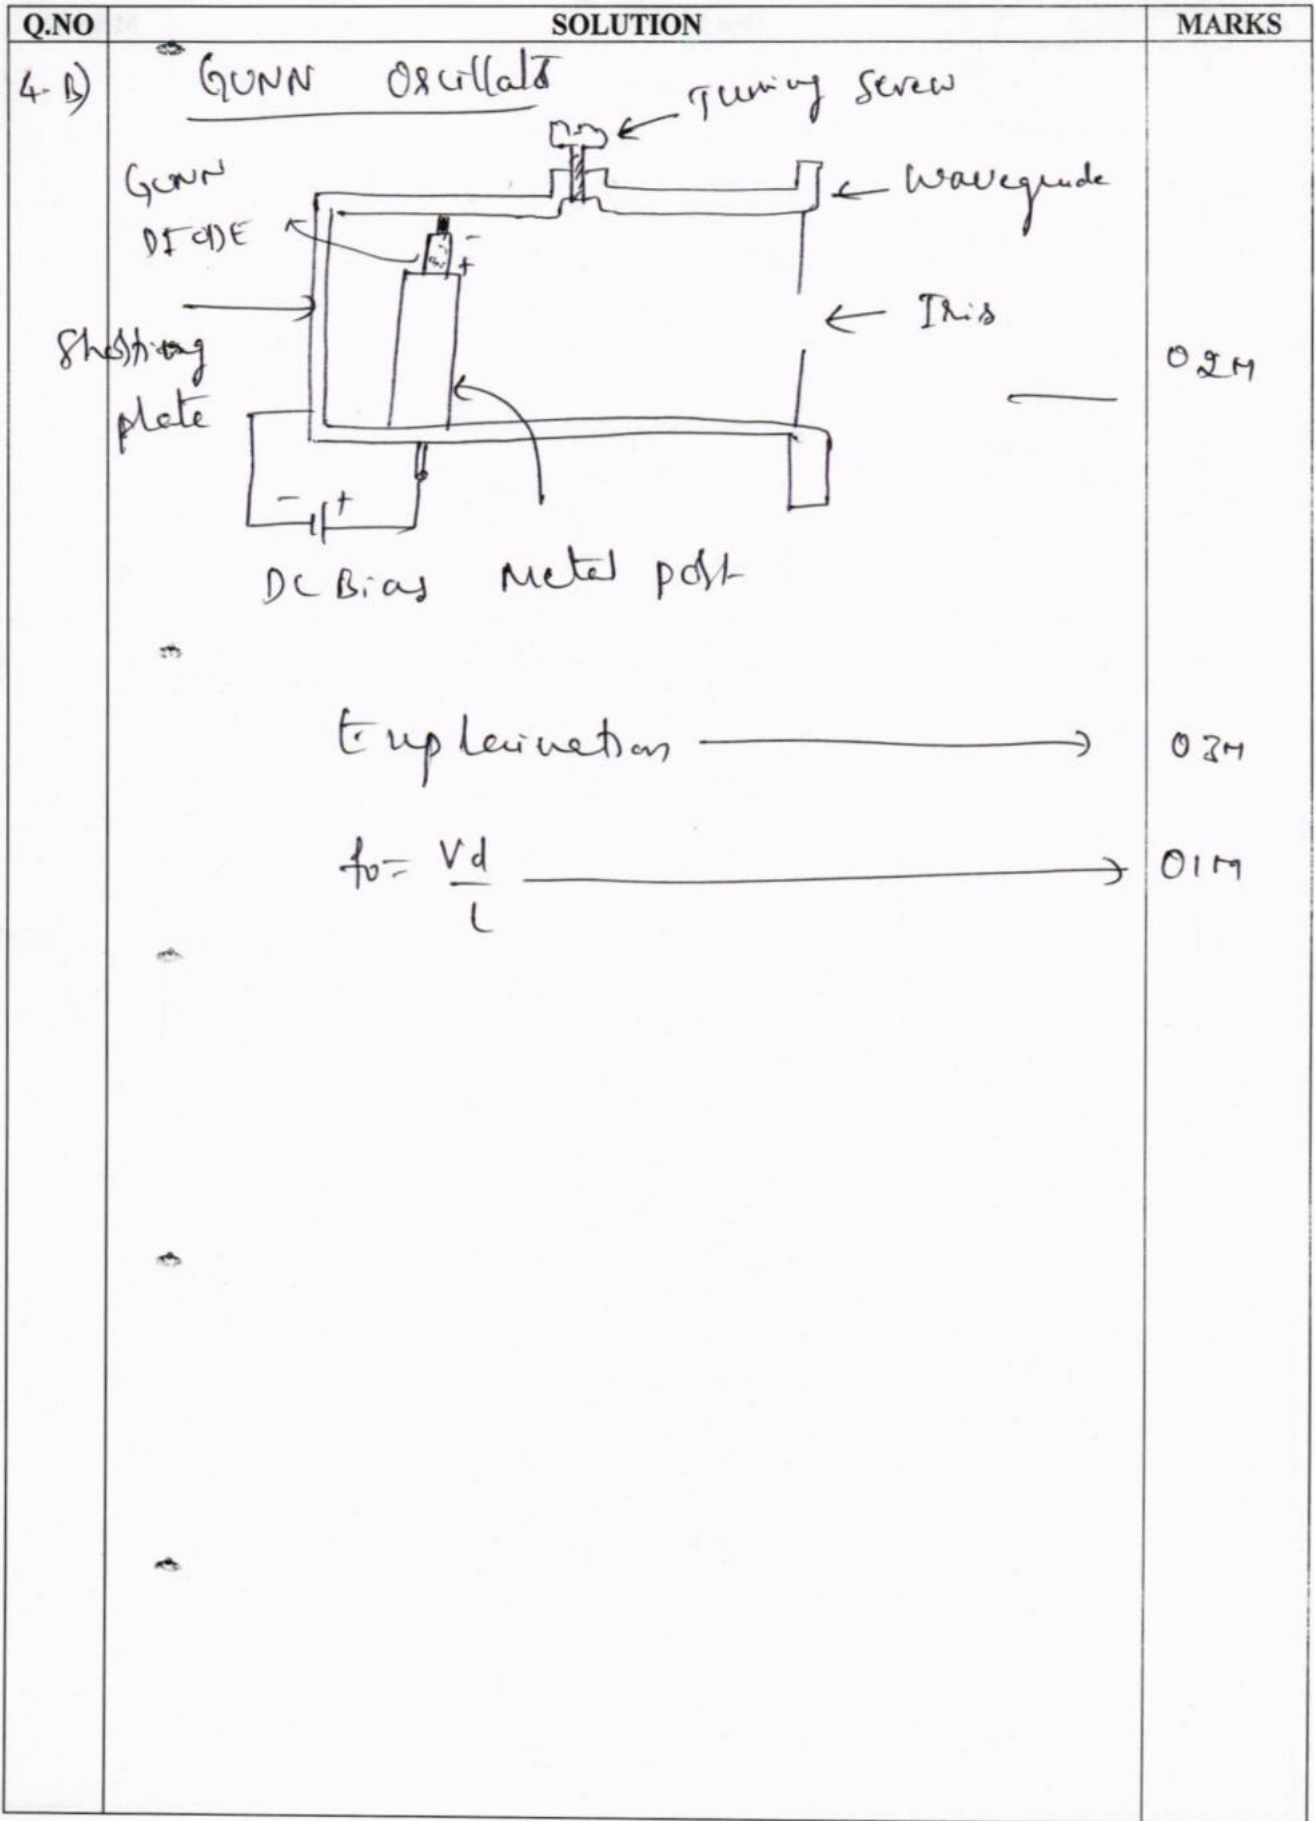 Q.NO SOLUTION MARKS
4. B) GUNN Oscillator
Tuning Screw
GUNN
DIODE
Waveguide
- 
+
Shorting
plate
Iris
02M
- +
DC Bias Metal post
Explaination 03M
fo = Vd
L
01M